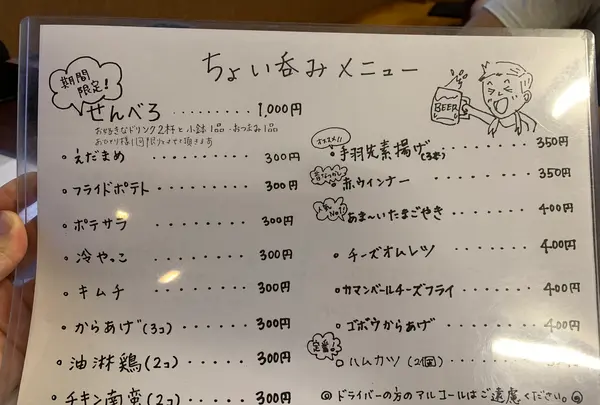 ちょい呑みメニュー
期間限定!
せんべろ ・・・・・・・ 1,000円
お好きなドリンク2杯と小鉢1品・おつまみ1品
・えだまめ ・・・・・・・ 300円
・フライドポテト ・・・・・ 300円
・ポテサラ ・・・・・・ 300円
・冷やっこ ・・・・・・ 300円
・キムチ ・・・・・・・ 300円
・からあげ(3コ) ・・・・・ 300円
・油淋鶏(2コ) ・・・・・ 300円
・チキン南蛮(2コ) ・・・・ 300円
BEER
オススメ!!
・手羽先素揚げ(3本) ・・・・ 350円
昔なつかし
・赤ウインナー ・・・・・ 350円
人気No.1
・あま〜いたまごやき ・・・・ 400円
・チーズオムレツ ・・・・・ 400円
・カマンベールチーズフライ ・・ 400円
・ゴボウからあげ ・・・・・ 400円
定番!
・ハムカツ(2個) ・・・・・ 350円
◎ドライバーの方のアルコールはご遠慮ください。◎